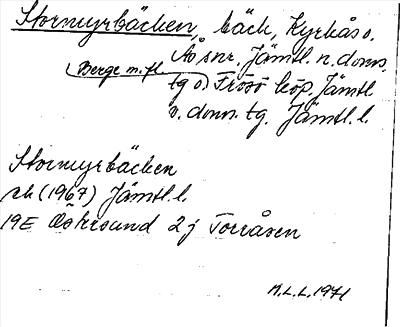 Stormyrbäcken, bäck, Kyrkås o.
Ås snr. Jämtl. n. doms.
Berge m.fl. tg o. Frösö köp. Jämtl.
v. doms. tg. Jämtl. l.
Stormyrbäcken
rek (1967) Jämtl. l.
19E Östersund 2j Torråsen
M.L.L. 1971